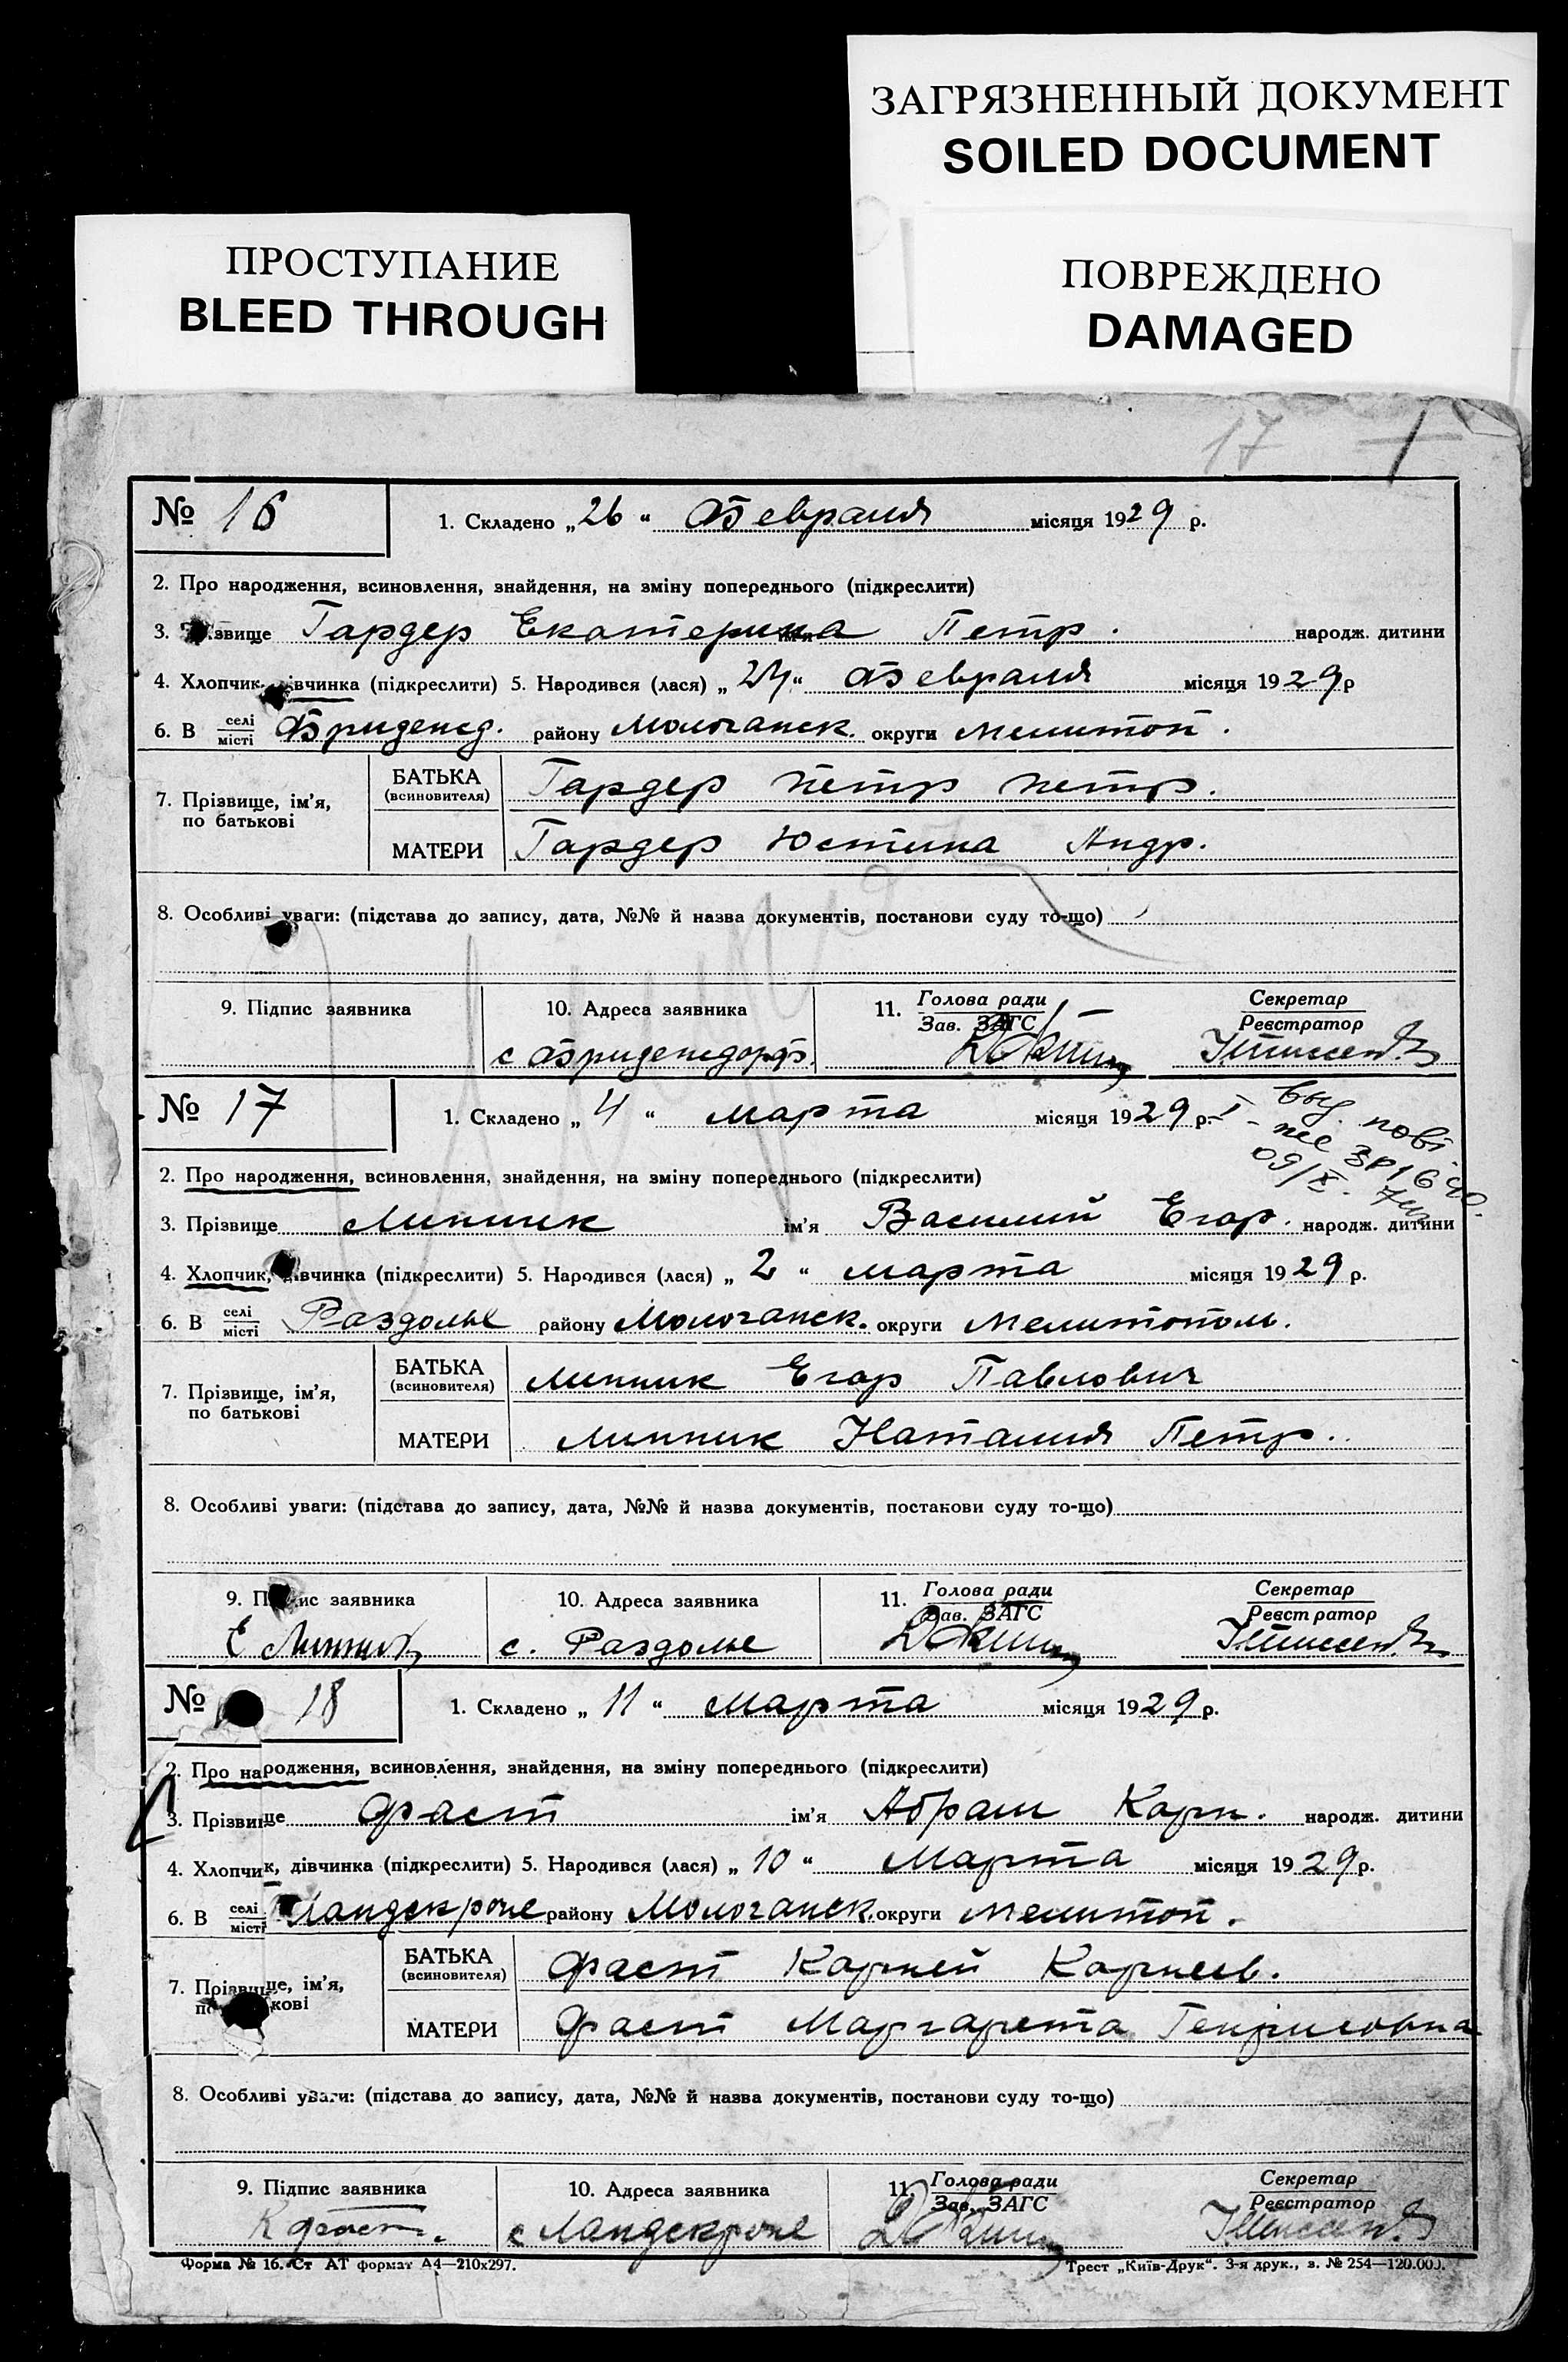 ЗАГРЯЗНЕННЫЙ ДОКУМЕНТ
SOILED DOCUMENT
ПРОСТУПАНИЕ
BLEED THROUGH
ПОВРЕЖДЕНО
DAMAGED
17
№ 16 1. Складено „26“ Февраля місяця 1929 р.
2. Про народження, всиновлення, знайдення, на зміну попереднього (підкреслити)
3. звище Гардер Екатерина Петр. народж. дитини
4. Хлопчик, івчинка (підкреслити) 5. Народився (лася) „24“ Февраля місяця 1929 р
6. В селі місті Фриденсд. району Молочанск. округи Мелитоп.
7. Прізвище, ім’я, по батькові
БАТЬКА (всиновителя) Гардер Петр Петр.
МАТЕРИ Гардер Юстина Андр.
8. Особливі уваги: (підстава до запису, дата, №№ й назва документів, постанови суду то-що)
9. Підпис заявника 10. Адреса заявника 11. Голова ради Зав. ЗАГС Секретар Реєстратор
с Фриденсдорф.
№ 17 1. Складено „4“ марта місяця 1929 р.
выд. пові
2. Про народження, всиновлення, знайдення, на зміну попереднього (підкреслити)
3. Прізвище Линник ім’я Василий Егор. народж. дитини
4. Хлопчик, івчинка (підкреслити) 5. Народився (лася) „2“ марта місяця 1929 р.
6. В селі місті Раздолье району Молочанск. округи Мелитополь.
7. Прізвище, ім’я, по батькові
БАТЬКА (всиновителя) Линник Егор Павлович
МАТЕРИ Линник Наталия Петр.
8. Особливі уваги: (підстава до запису, дата, №№ й назва документів, постанови суду то-що)
9. П ис заявника 10. Адреса заявника 11. Голова ради Зав. ЗАГС Секретар Реєстратор
Е Линник с. Раздолье
№ 18 1. Складено „11“ марта місяця 1929 р.
2. Про народження, всиновлення, знайдення, на зміну попереднього (підкреслити)
3. Прізвище Фаст ім’я Абрам Корн. народж. дитини
4. Хлопчик, дівчинка (підкреслити) 5. Народився (лася) „10“ Марта місяця 1929 р.
6. В селі місті Ландскроне району Молочанск. округи Мелитоп.
7. Прізвище, ім’я, по кові
БАТЬКА (всиновителя) Фаст Корней Корнеев.
МАТЕРИ Фаст Маргарета Генриховна
8. Особливі уваги: (підстава до запису, дата, №№ й назва документів, постанови суду то-що)
9. Підпис заявника 10. Адреса заявника 11. Голова ради Зав. ЗАГС Секретар Реєстратор
К Фаст. с Ландскроне
Форма № 16. Ст АТ формат А4—210х297. Трест „Київ-Друк“. 3-я друк., з. № 254—120.000.